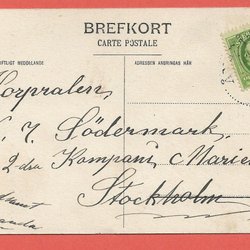 BREFKORT
CARTE POSTALE
SKRIFTLIGT MEDDELANDE
ADRESSEN ANBRINGAS HÄR
Korpralen
J Södermark
2-dra Kompani Marie
Stockholm